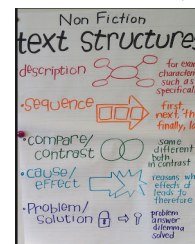 Non Fiction
text structure
description
for exa
character
such as
specifical
•sequence
first,
next, th
finally, la
•compare/
contrast
same
different
both
in contrast
•cause/
effect
reasons wh
effects of
leads to
therefore
•Problem/
Solution
problem
answer
dilemma
solved